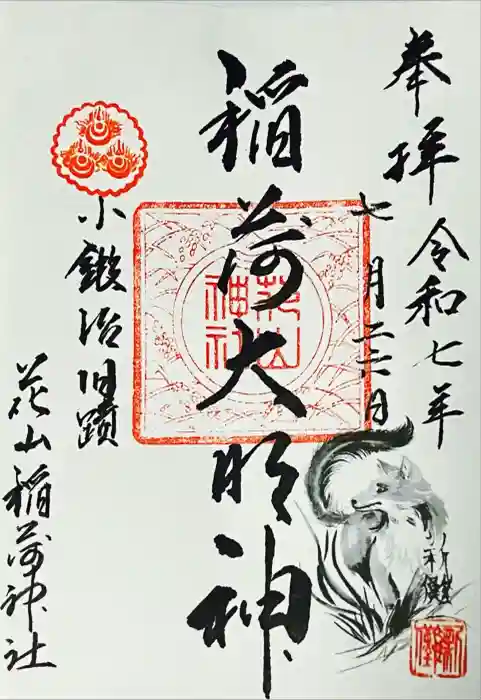 奉拝
令和七年
七月二三日
稲荷大明神
花山神社
小鍛冶旧蹟
花山稲荷神社